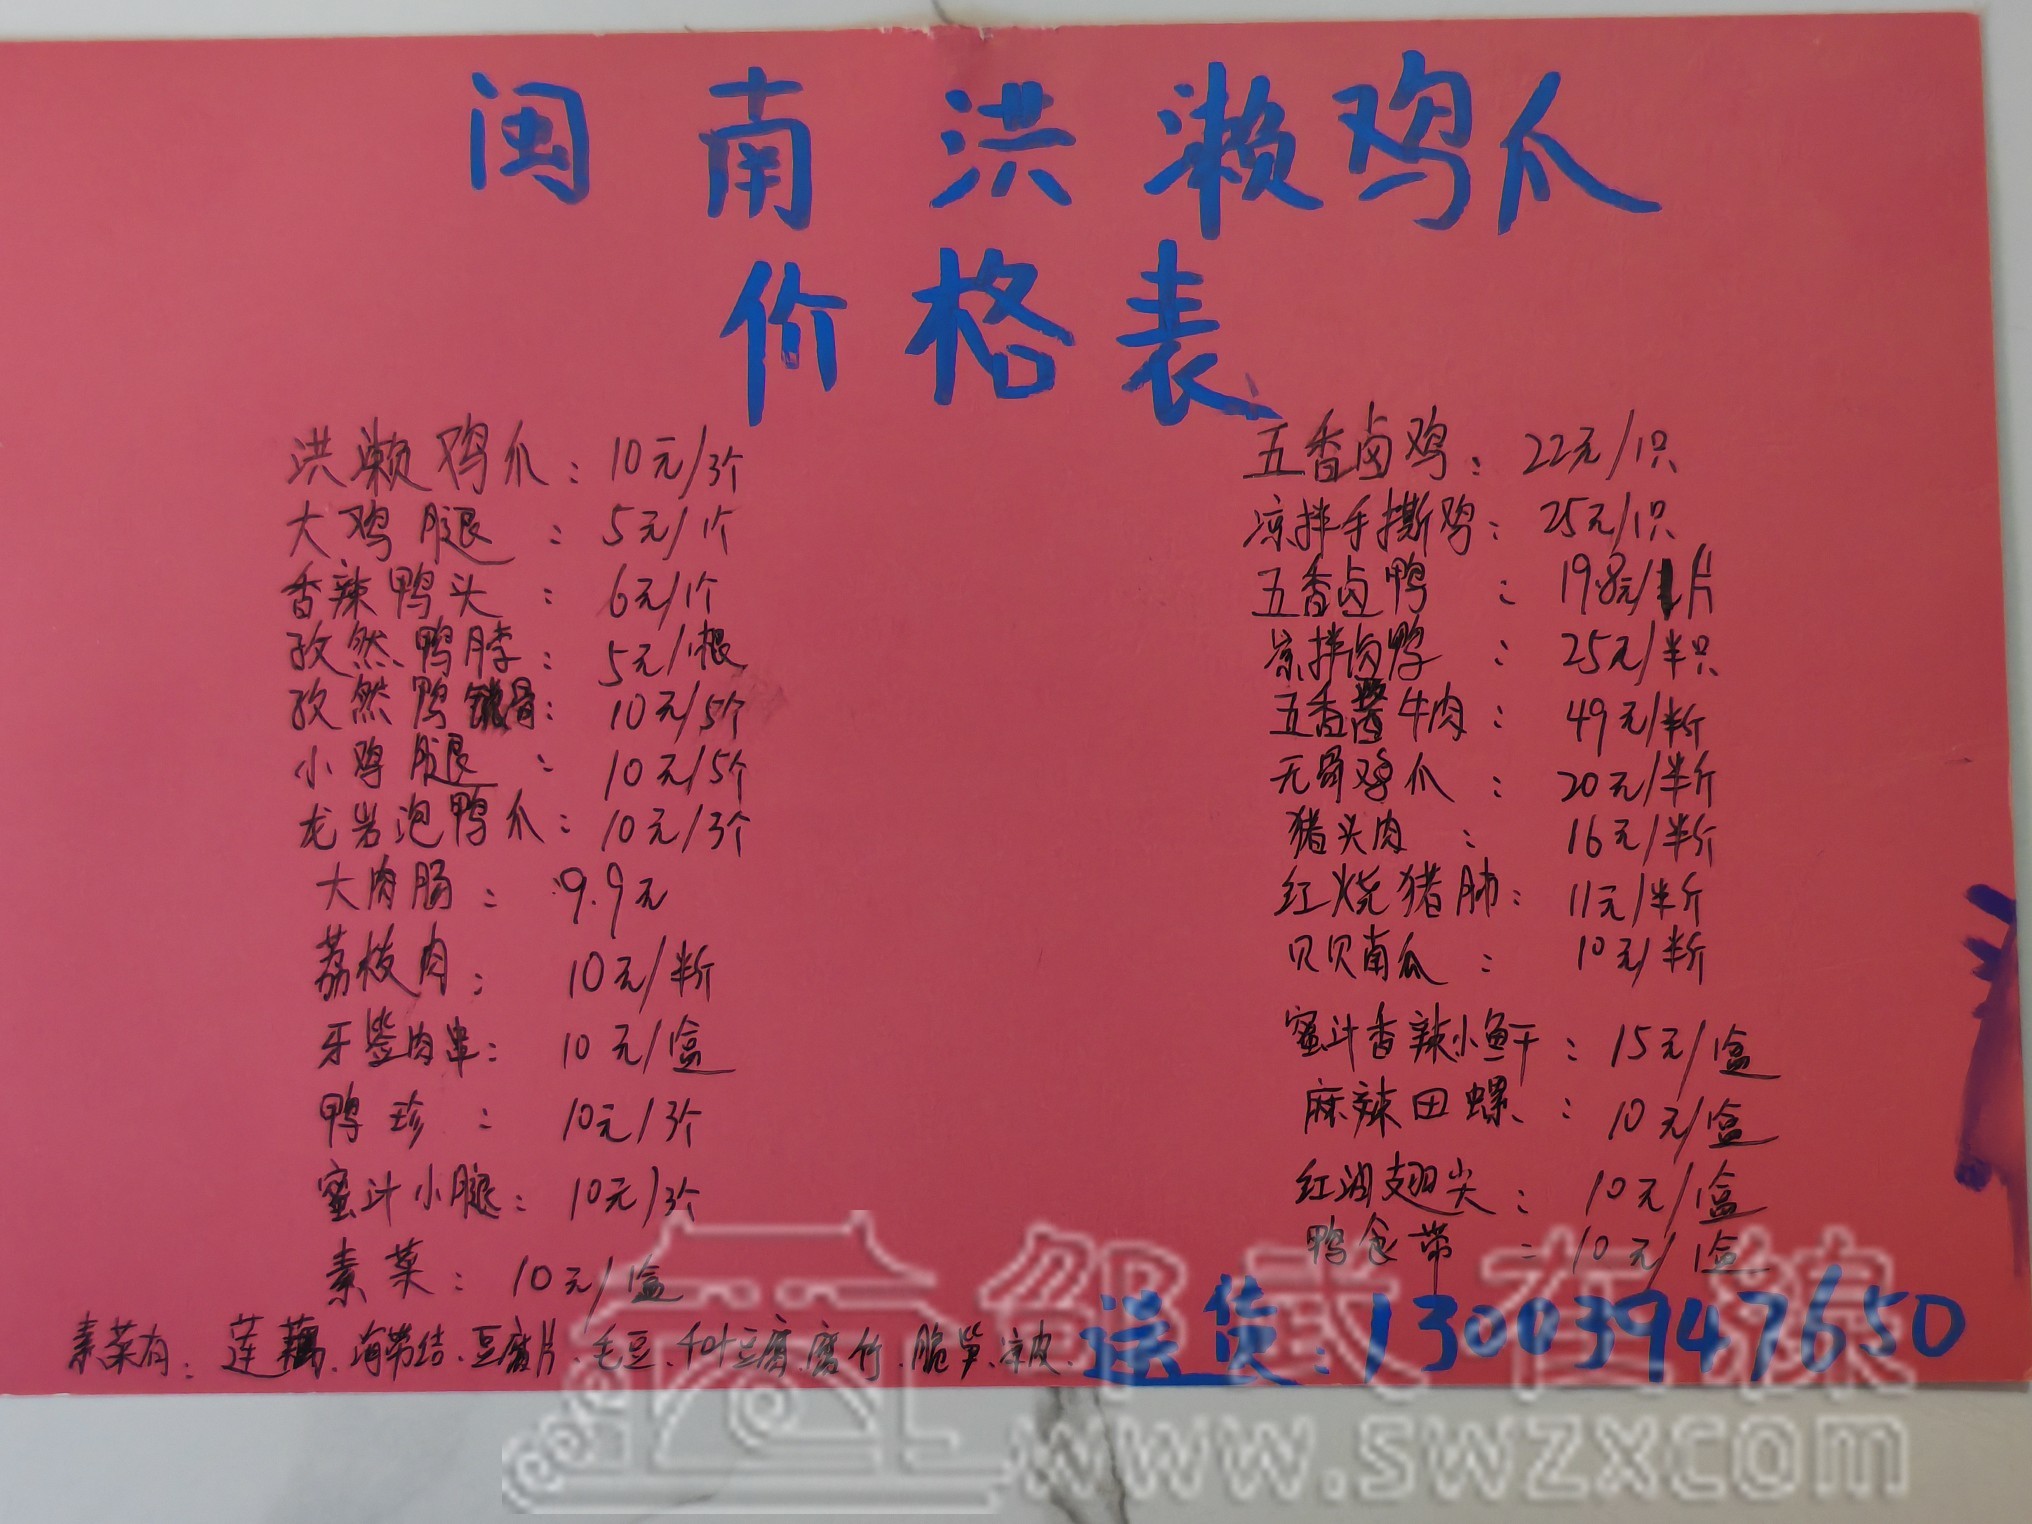 闽南洪濑鸡爪
价格表
洪濑鸡爪：10元/3个
大鸡腿：5元/1个
香辣鸭头：6元/1个
孜然鸭脖：5元/1根
孜然鸭锁骨：10元/5个
小鸡腿：10元/5个
龙岩泡鸭爪：10元/3个
大肉肠：9.9元
荔枝肉：10元/半斤
牙签肉串：10元/1盒
鸭珍：10元/3个
蜜汁小腿：10元/3个
素菜：10元/1盒
五香卤鸡：22元/1只
凉拌手撕鸡：25元/1只
五香卤鸭：19.8元/1片
凉拌卤鸭：25元/半只
五香酱牛肉：49元/半斤
无骨鸡爪：20元/半斤
猪头肉：16元/半斤
红烧猪肺：11元/半斤
贝贝南瓜：10元/半斤
蜜汁香辣小鱼干：15元/1盒
麻辣田螺：10元/1盒
红油翅尖：10元/1盒
鸭食带：10元/1盒
素菜有：莲藕、海带结、豆腐片、毛豆、千叶豆腐、腐竹、脆笋、凉皮、
送货：13003947650
邵武在線
www.swzx.com